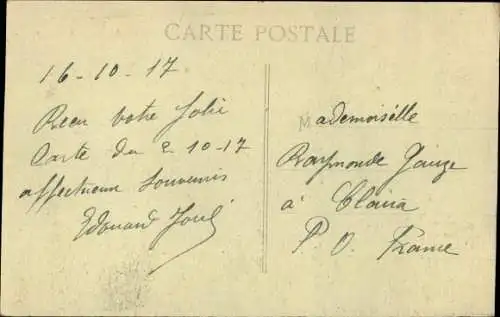 CARTE POSTALE
16-10-17
Recu votre Jolie
Carte du 2-10-17
affectueux Souvenirs
Edouard
Mademoiselle
Raymonde Jauze
à Claira
P. O. France